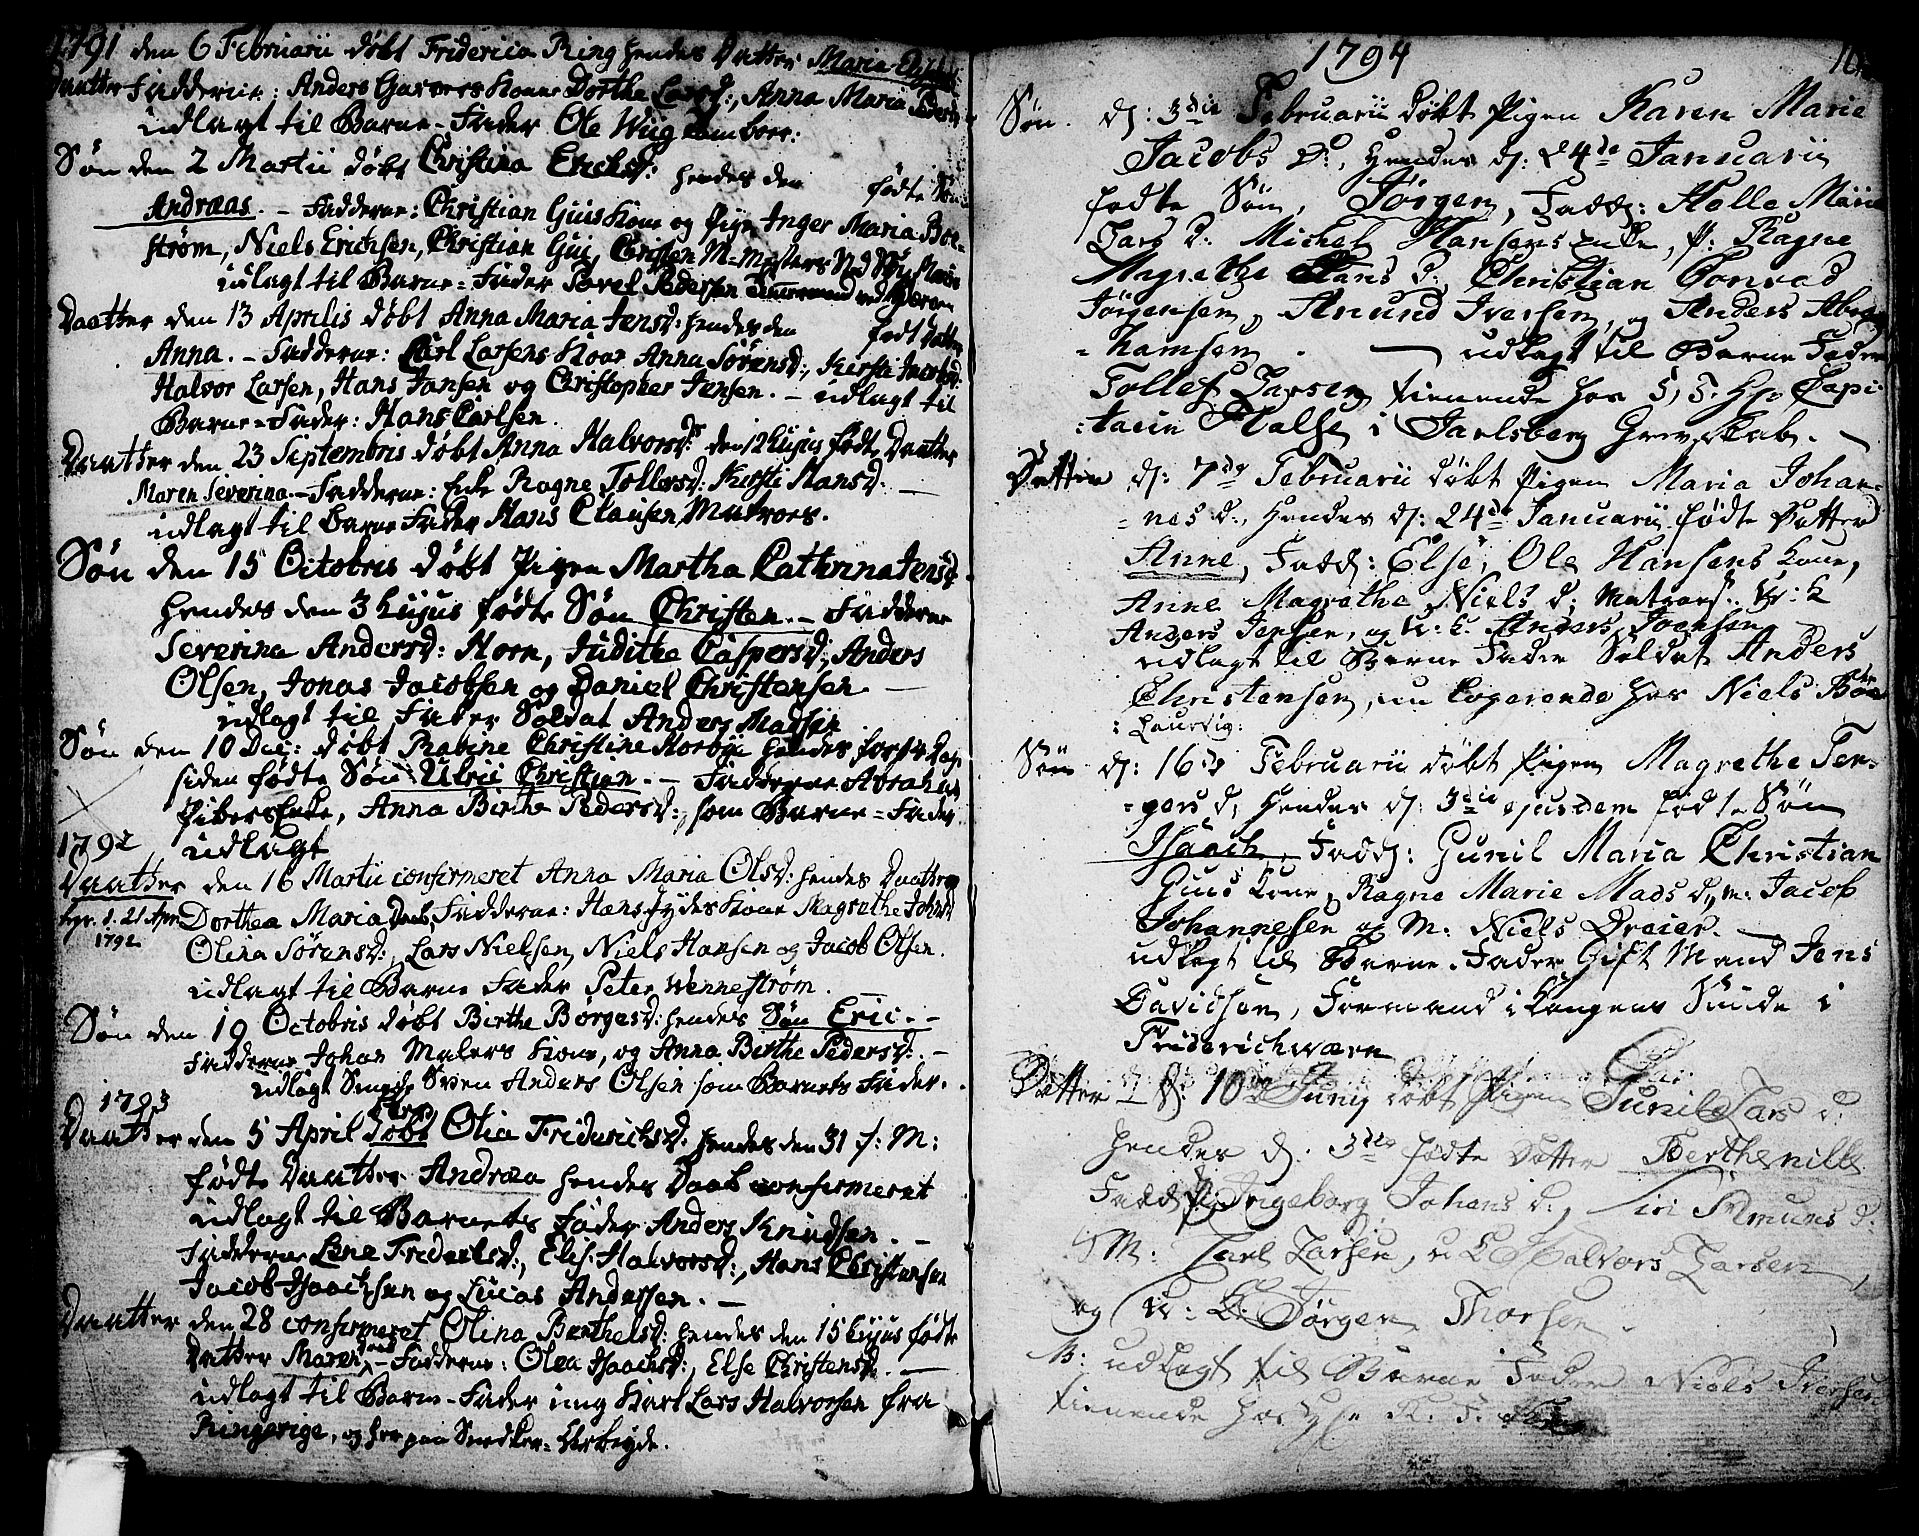 1791 den 6 Februarii døbt Friderica Ring hendes Datter Maria
Daatter Fadderne: Anders Garvers Kone Dorthe Larsd:, Anna Maria
udlagt til Barne-Fader Ole Wiig
Søn den 2 Martii døbt Christina Ericksd: hendes den fødte Søn
Andræas. - Fadderne: Christian Guis Kone og Pige Inger Maria Boe-
strøm, Niels Erichsen, Christian Gui, Christen
udlagt til Barne-Fader Povel Pedersen
Daatter den 13 Aprilis døbt Anna Maria Jensd: hendes den født Datter
Anna. - Fadderne: Carl Larsens Kone Anna Sørensd:, Kirsti
Halvor Larsen, Hans Jansen og Christopher Jensen. - udlagt til
Barne-Fader: Hans Carlsen.
Daatter den 23 Septembris døbt Anna Halvorsds den 12 hujus fødte Daatter
Maren Severina. - Fadderne: Enke Ragne Tollefsd: Kirsti Hansd. -
udlagt til Barne Fader Hans Clausen Matroes.
Søn den 15 Octobris døbt Pigen Martha Cathrina Jensd
hendes den 3 hujus fødte Søn Christen. - Fadderne
Severina Andersd: Horn, Judithe Caspersd:, Anders
Olsen, Jonas Jacobsen og Daniel Christensen. -
udlagt til Fader Soldat Anders Madsen
Søn den 10 Dec: døbt Rabine Christine hendes for 14 Dage
siden fødte Søn Ulric Christian. - Fadderne Abraham
Enke, Anna Birthe Pedersd:, som Barne-Fader
udlagt
1792
Daatter den 16 Martii confirmeret Anna Maria Olsd: hendes Daatter
d. 21 Apr. 1792 Dorthea Maria Daab, Fadderne: Hans Jydes Kone Magrethe
Olina Sørensd:, Lars Nielsen, Niels Hansen og Jacob Olsen.
udlagt til Barne Fader Peter Wenneström.
Søn den 19 Octobris døbt Birthe Børgesd: hendes Søn Eric. -
Fadderne Johan Malers Kone, og Anna Birthe Pedersd: -
udlagt Smede Sven Anders Olsen som Barnets Fader.
1793
Daatter den 5 April døbt Olia Friderichsd: hendes den 31 f: M:
fødte Daatter Andræa hendes Daab confirmeret
udlagt til Barnets Fader Anders Knudsen. -
Fadderne Lene Fredrelsd:, Elis. Halvorsd:, Hans Christensen
Jacob Isaachsen og Lucas Andersen. -
Daatter den 28 confirmeret Olina Berthelsd: hendes den 15 hujus fødte
Datter Maren Daab - Fadderne: Olea Isaachsd:, Else Christensd. -
udlagt til Barne-Fader ung Karl Lars Halvorsen fra
Ringerige, og her paa Snedker-Arbeyde.
1794
Søn. d: 3die Februarii døbt Pigen Karen Marie
Jacobs D:, Hendes d: 24de Januarii
fødte Søn, Jørgen, Fadd: Helle Marie
Lars D. Michel Hansens Enke, P: Ragne
Magrethe Hans d. Christian Conrad
Jørgensen, Amund Iversen, og Anders Abra-
-hamsen. - udlagt til Barne Fader
Tollef Larsen tienende hos S. T. Hr. Capi-
-tain Halse i Jarlsberg Grevskab. -
Datter d: 7de Februarii døbt Pigen Maria Johan-
-nes d:, Hendes d: 24de Januarii fødte Datter
Anne, Fadd: Else, Ole Hansens Kone,
Anne Magrethe Niels d; Matros.
Anders Jensen, og U: K. Anders Joensen
udlagt til Barne Fader Soldat Anders
Christensen, nu logerende hos Niels
: Laurvig:
Søn d: 16de Februarii døbt Pigen Magrethe Jen-
-gers d; Hendes d: 3die ejusdem fødte Søn
Isaach, Fadd: Gunil Maria Christian
Guis Kone, Ragne Marie Mads d, Jacob
Johannesen og M: Niels Dreier. -
udlagt til Barne-Fader Gift Mand Jens
Davidsen, Formand i Kongens Smide i
Friderichsværn
Datter d: 10de Junij døbt Pigen Gunild Lars d:
hendes d. 3die fødte Datter Berthenille
Fadd: P: Ingeborg Johans d., Siri Amunds d.
G M: Carl Larsen, u: K Halvor Larsen,
og U: K: Jørgen Thorsen.
B: udlagt til Barne Fader Niels Iversen
tienende hos